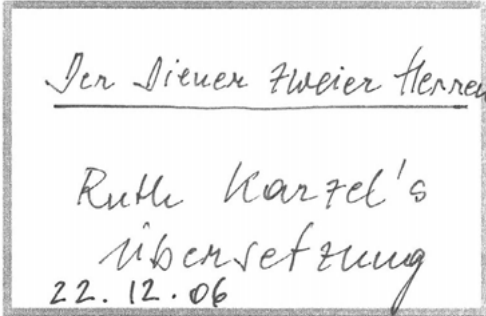 Der Diener zweier Herren
Ruth Karzel's
Übersetzung
22.12.06